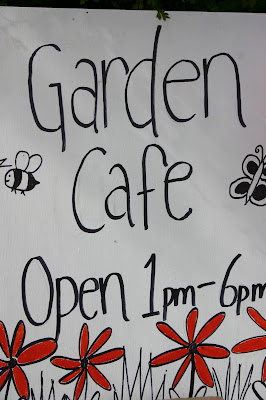 Garden
Cafe
Open 1pm-6pm